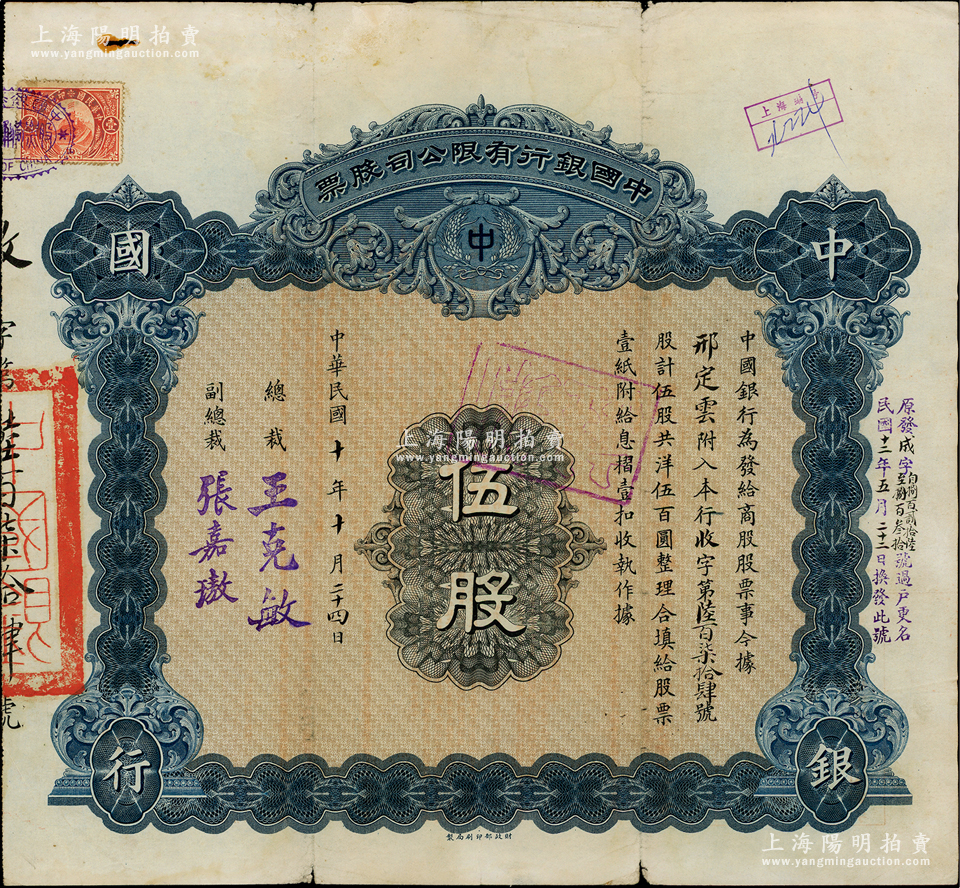 上海陽明拍賣
www.yangmingauction.com
中國銀行有限公司股票
中
中
國
銀
行
中國銀行為發給商股股票事今據
邢定雲附入本行收字第陸百柒拾肆號
股計伍股共洋伍百圓整理合填給股票
壹紙附給息摺壹扣收執作據
伍股
中華民國十年十月二十四日
總裁 王克敏
副總裁 張嘉璈
原發成字
號過戶更名
民國十二年五月二十二日換發此號
收字第陸百柒拾肆號
上海
OF CHINA
財政部印刷局製
上海陽明拍賣
www.yangmingauction.com
上海陽明拍賣
www.yangmingauction.com